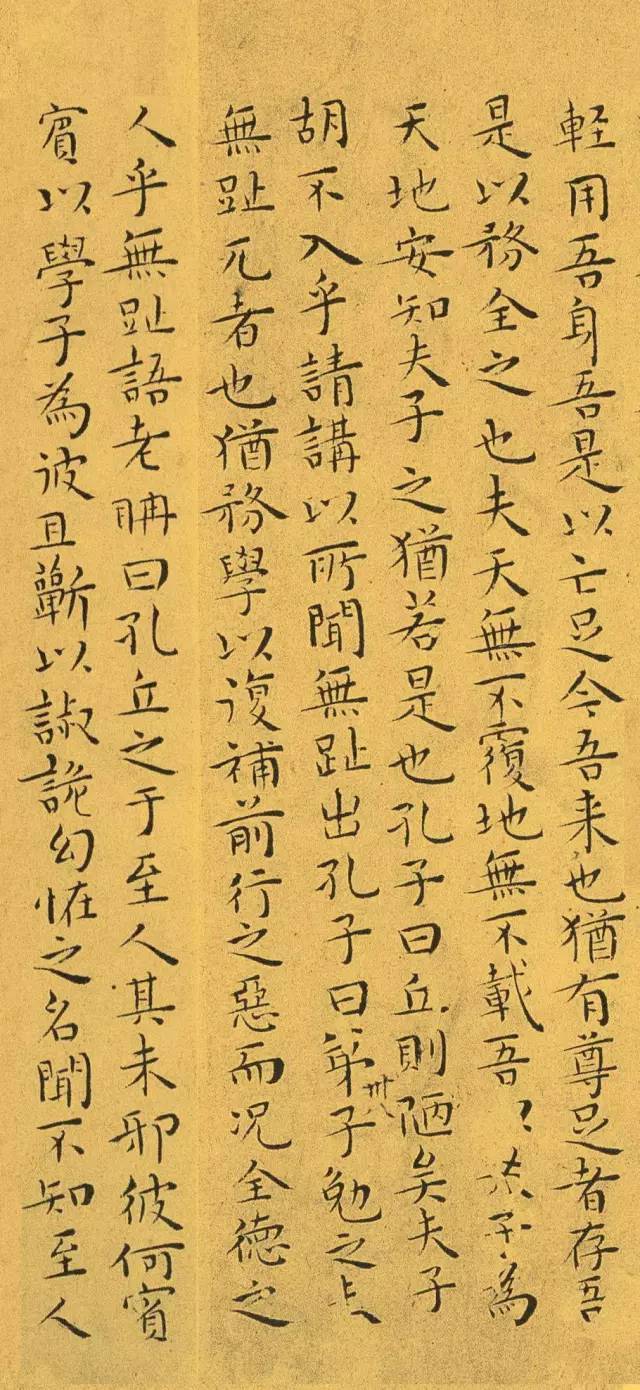 輕用吾身吾是以亡足今吾来也猶有尊足者存吾
是以務全之也夫天無不覆地無不載吾〻夫子為
天地安知夫子之猶若是也孔子曰丘則陋矣夫子
胡不入乎請講以所聞無趾出孔子曰弟子勉之
無趾兀者也猶務學以復補前行之惡而况全德之
人乎無趾語老聃曰孔丘之于至人其未邪彼何賓
賓以學子為彼且蘄以諔詭幻恠之名聞不知至人